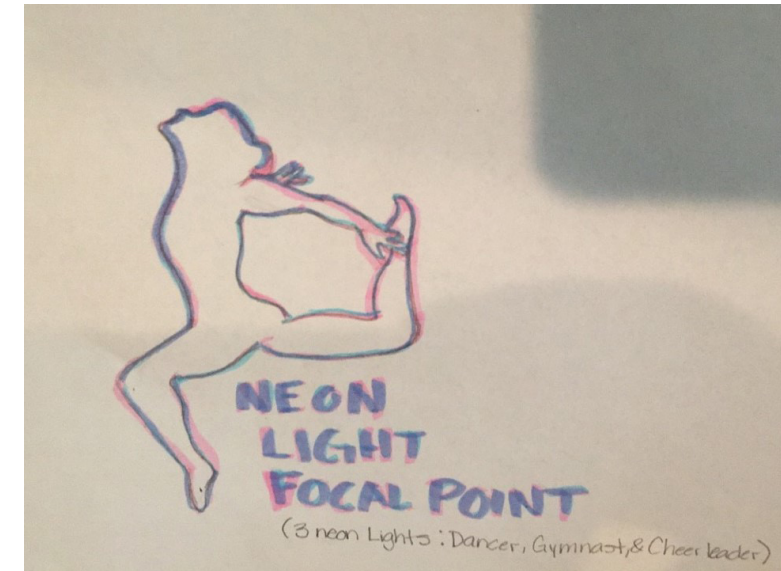 NEON
LIGHT
FOCAL POINT
(3 neon Lights: Dancer, Gymnast, & Cheer leader)